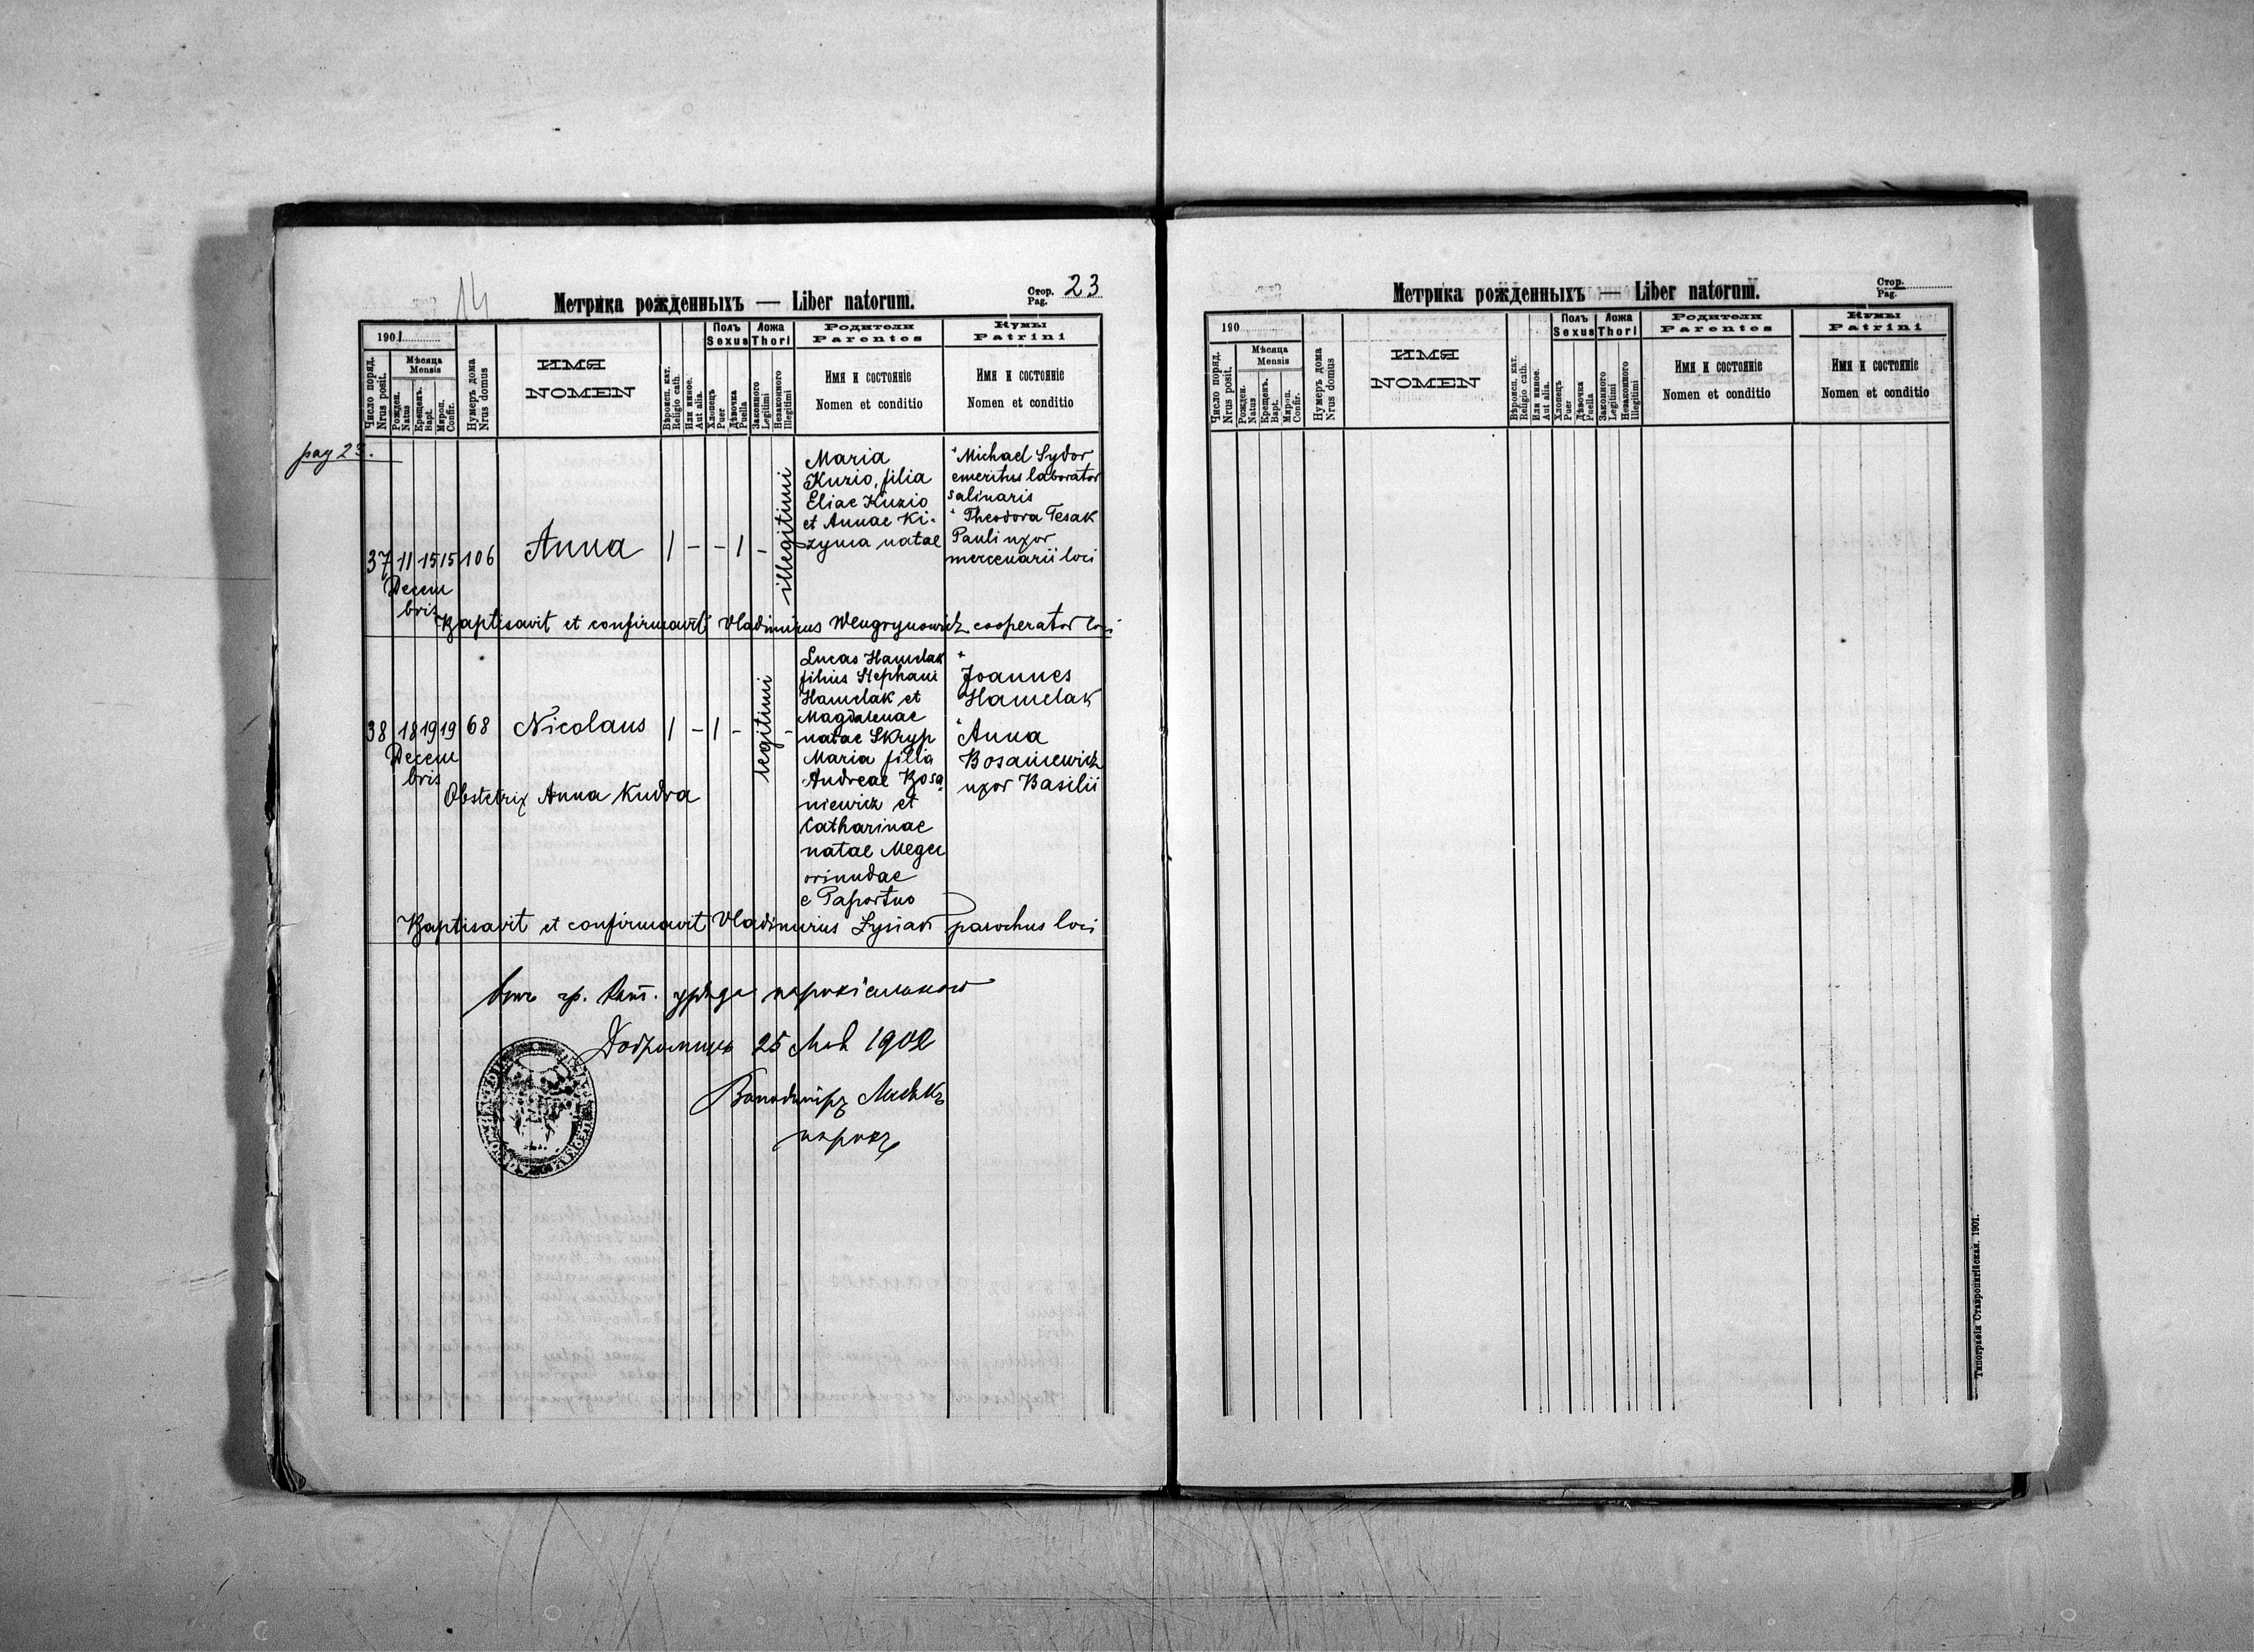 14
Метрика рожденныхъ — Liber natorum.
Стор. Pag. 23
1901
Число поряд. Nrus posit.
Мѣсяца Mensis
Рожден. Natus
Крещенъ. Bapt.
Мироп. Confir.
Нумеръ дома Nrus domus
ИМЯ
NOMEN
Вѣроисп. кат. Religio cath.
Или инное. Aut alia.
Полъ
Sexus
Хлопецъ Puer
Дѣвочка Puella
Ложа
Thori
Законного Legitimi
Незаконного Illegitimi
Родители
Parentes
Имя и состояніе
Nomen et conditio
Кумы
Patrini
Имя и состояніе
Nomen et conditio
pag 23.
37 11 15 15 106 Anna 1 - - 1 - illegitimi
Decem
bris
Maria
Kuzio, filia
Eliae Kuzio
et Annae Ki-
zyma natae
+ Michael Sydor
emeritus laborator
salinaris
+ Theodora Tesak
Pauli uxor
mercenarii loci
Baptisavit et confirmavit Vladimirus Wengrynowicz cooperator loci
38 18 19 19 68 Nicolaus 1 - 1 - legitimi -
Decem
bris
Obstetrix Anna Kudra
Lucas Hamelak
filius Stephani
Hamelak et
Magdalenae
natae Skryp
Maria filia
Andreae Bosa
niewicz et
Catharinae
natae Meger
oriundae
e Paportno
+
Joannes
Hamelak
+ Anna
Bosaniewicz
uxor Basilii
Baptisavit et confirmavit Vladimirus Lysiak parochus loci
гр. кат. уряда парохіяльного
Добромиль 25 1902
Володимiръ Лисѣкъ
парохъ
Метрика рожденныхъ — Liber natorum.
Стор. Pag.
190
Число поряд. Nrus posit.
Мѣсяца Mensis
Рожден. Natus
Крещенъ. Bapt.
Мироп. Confir.
Нумеръ дома Nrus domus
ИМЯ
NOMEN
Вѣроисп. кат. Religio cath.
Или инное. Aut alia.
Полъ
Sexus
Хлопецъ Puer
Дѣвочка Puella
Ложа
Thori
Законного Legitimi
Незаконного Illegitimi
Родители
Parentes
Имя и состояніе
Nomen et conditio
Кумы
Patrini
Имя и состояніе
Nomen et conditio
Типографія Ставропигійская. 1901.